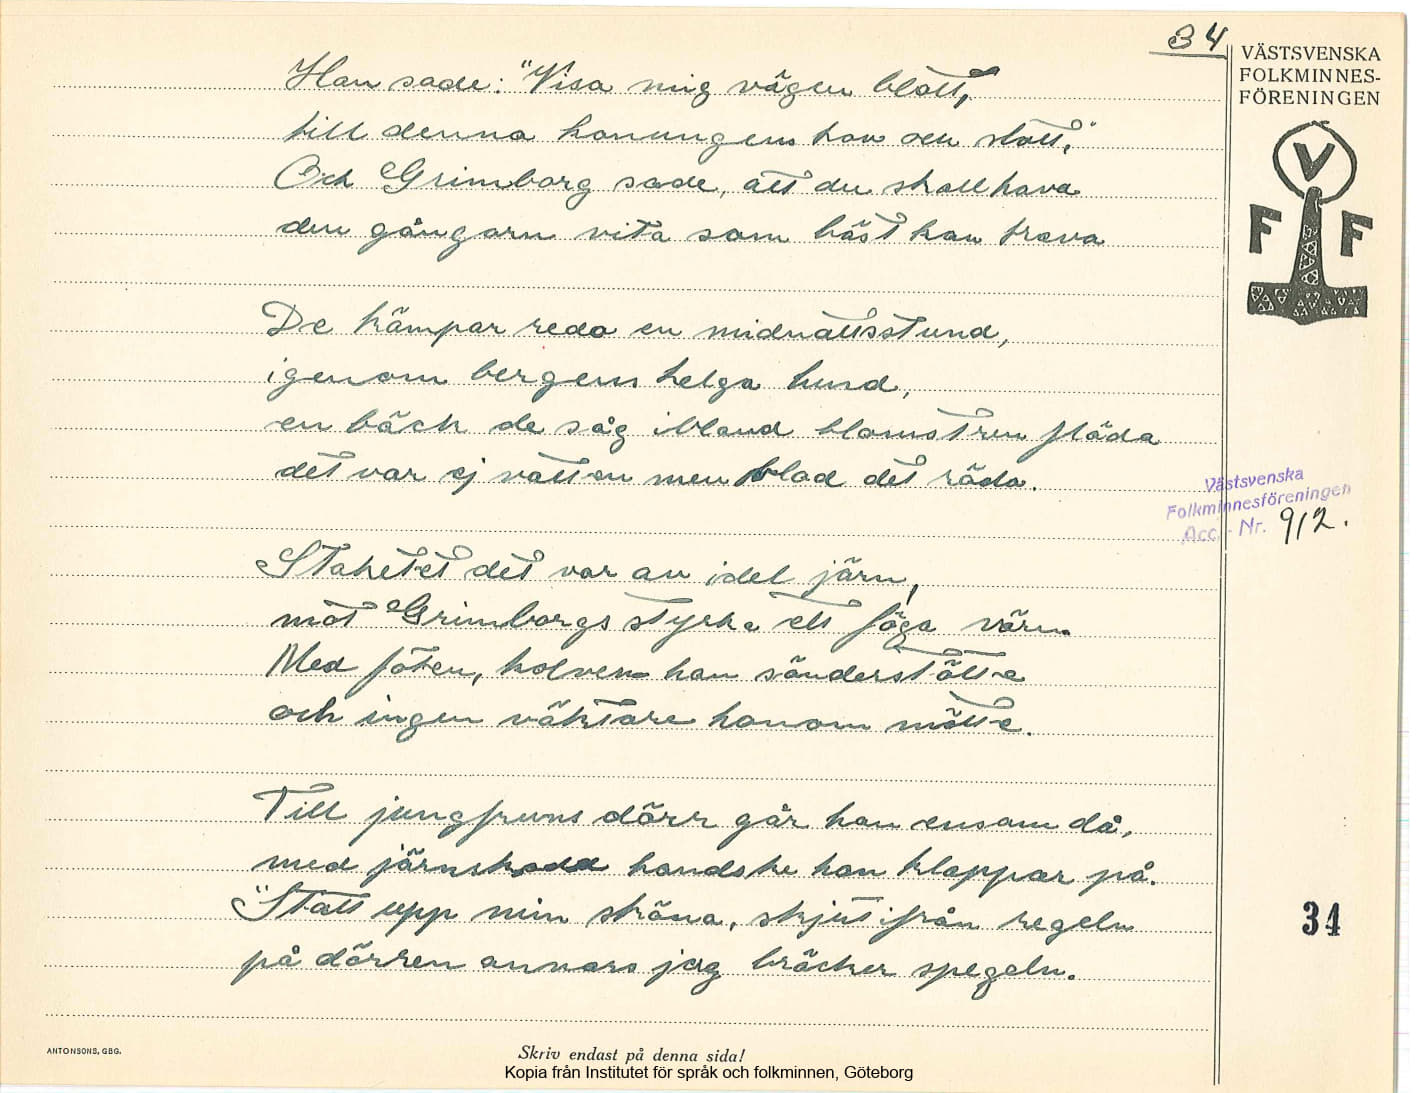 34
VÄSTSVENSKA
FOLKMINNES-
FÖRENINGEN
V
F F
Han sade: "Visa mig vägen blott,
till denna konungens hov och slott."
Och Grimborg sade, att du skall hava
den gångarn vita som bäst kan trava
De kämpar redo en midnattsstund,
igenom bergens helga lund,
en bäck de såg ibland blomstren flöda
det var ej vatten men blod det röda.
Staketet det var av idel järn,
mot Grimborgs styrka ett föga värn.
Med foten, kolven han sönderstötte
och ingen väktare honom mötte.
Till jungfruns dörr går han ensam då,
med järnskodd handske han klappar på.
"Statt upp min sköna, skjut ifrån regeln
på dörren annars jag bräcker spegeln.
Västsvenska
Folkminnesföreningen
Acc. - Nr. 912.
34
ANTONSONS, GBG.
Skriv endast på denna sida!
Kopia från Institutet för språk och folkminnen, Göteborg